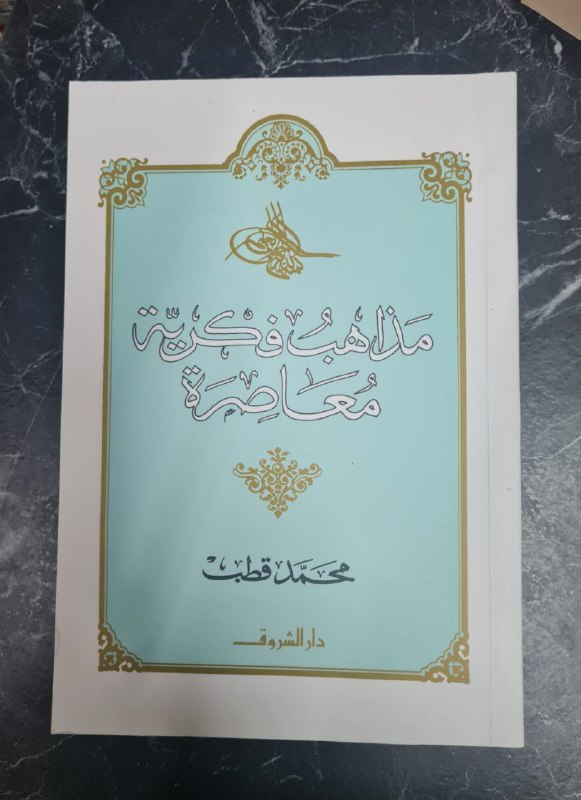 مَذاهبُ فكريّة
مُعَاصِرَة
محمّد قطب
دار الشروق